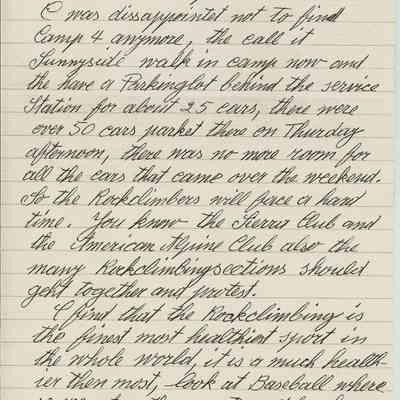 I was dissappointet not to find
Camp 4 anymore, the call it
Sunnyside walk in camp now and
the have a Parkinglot behind the service
Station for about 25 cars, there were
over 50 cars parket there on Thurday
afternoon, there was no more room for
all the cars that came over the weekend.
So the Rockclimbers will face a hard
time. You know the Sierra Club and
the American Alpine Club also the
many Rockclimbingsections should
geht together and protest.
I find that the Rockclimbing is
the finest most healthiest sport in
the whole world, it is a much health-
ier then most, look at Baseball where